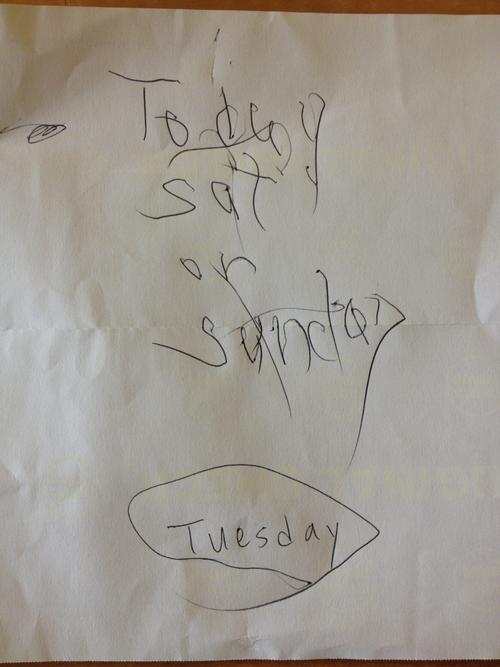 Today
sat
or
sunday
Tuesday